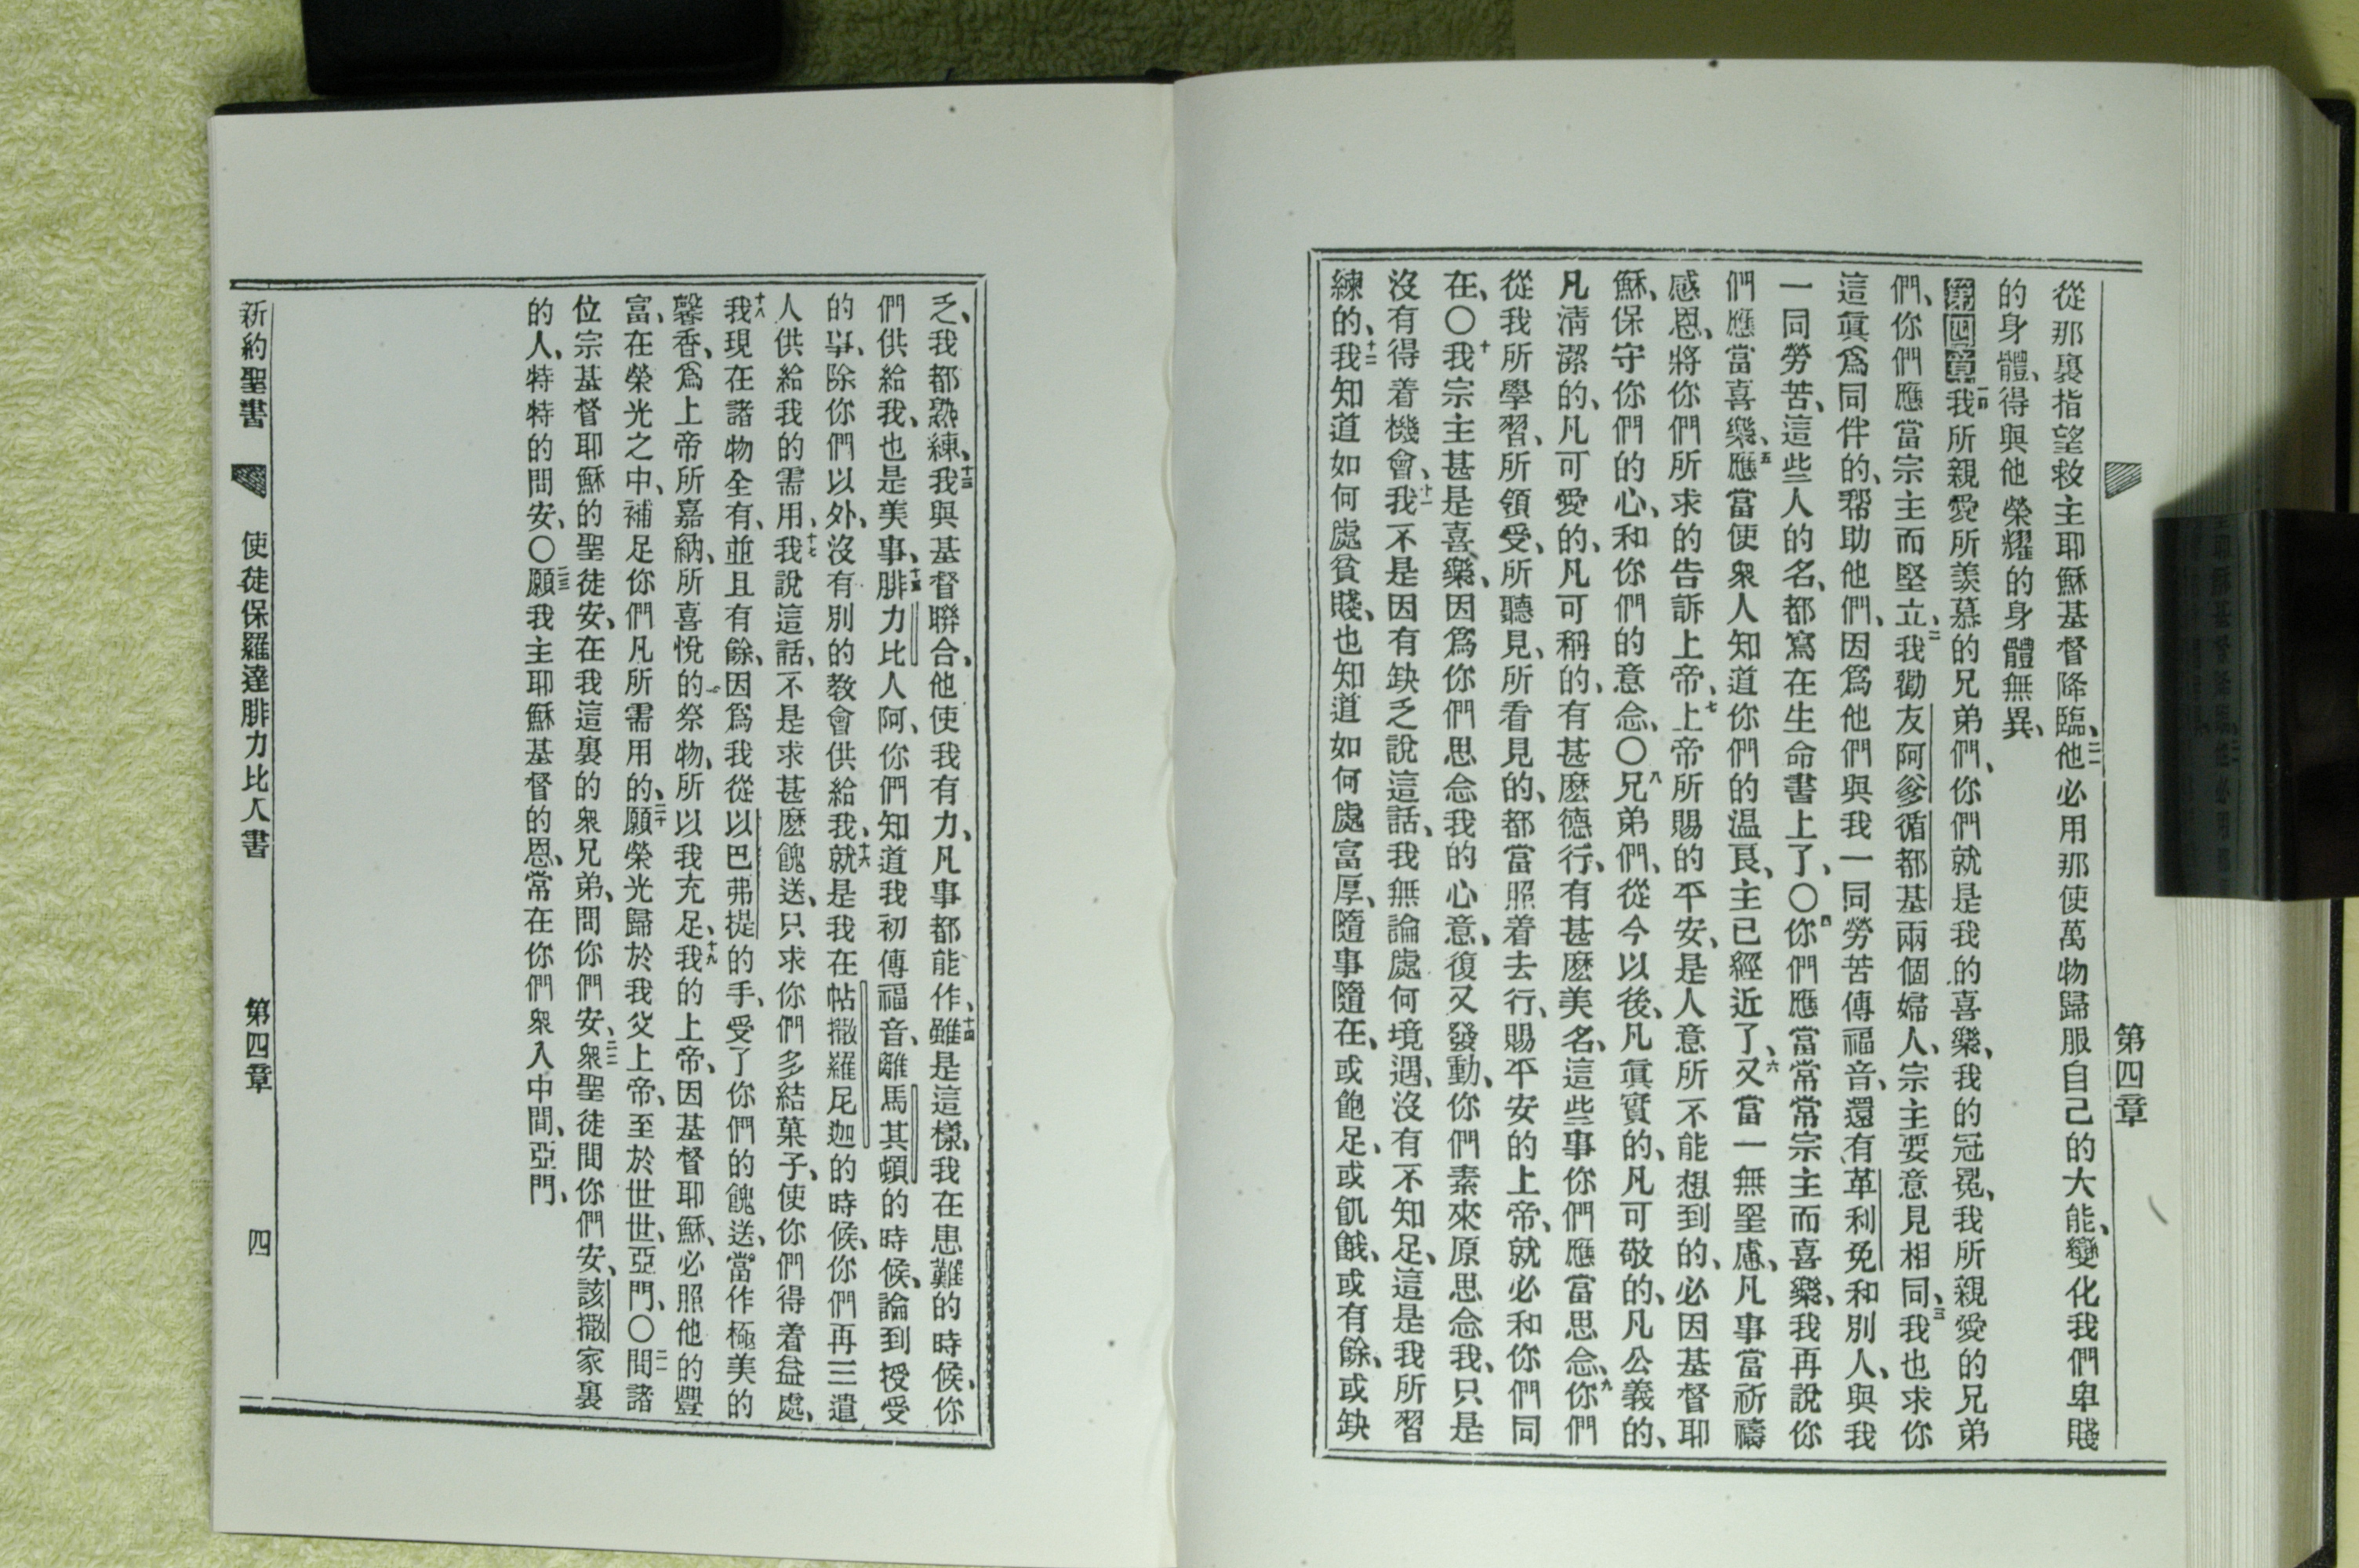 第四章
從那裏指望救主耶穌基督降臨、二一他必用那使萬物歸服自己的大能、變化我們卑賤
的身體、得與他榮耀的身體無異、
第四章一節我所親愛所羨慕的兄弟們、你們就是我的喜樂、我的冠冕、我所親愛的兄弟
們、你們應當宗主而堅立、二我勸友阿爹循都基兩個婦人、宗主要意見相同、三我也求你
這眞爲同伴的、帮助他們、因爲他們與我一同勞苦傳福音、還有革利免和別人、與我
一同勞苦、這些人的名、都寫在生命書上了、〇四你們應當常常宗主而喜樂、我再說你
們應當喜樂、五應當使衆人知道你們的温良、主已經近了、六又當一無罣慮、凡事當祈禱
感恩、將你們所求的告訴上帝、七上帝所賜的平安、是人意所不能想到的、必因基督耶
穌、保守你們的心、和你們的意念、〇八兄弟們、從今以後、凡眞實的、凡可敬的、凡公義的、
凡淸潔的、凡可愛的、凡可稱的、有甚麽德行、有甚麽美名、這些事你們應當思念、九你們
從我所學習、所領受、所聽見、所看見的、都當照着去行、賜平安的上帝、就必和你們同
在、〇十我宗主甚是喜樂、因爲你們思念我的心意、復又發動、你們素來原思念我、只是
沒有得着機會、十一我不是因有缺乏說這話、我無論處何境遇、沒有不知足、這是我所習
練的、十二我知道如何處貧賤、也知道如何處富厚、隨事隨在、或飽足、或飢餓、或有餘、或缺
乏、我都熟練、十三我與基督聯合、他使我有力、凡事都能作、十四雖是這樣、我在患難的時候、你
們供給我、也是美事、十五腓力比人阿、你們知道我初傳福音、離馬其頓的時候、論到授受
的事、除你們以外、沒有別的教會供給我、十六就是我在帖撒羅尼迦的時候、你們再三遣
人供給我的需用、十七我說這話、不是求甚麽餽送、只求你們多結菓子、使你們得着益處、
十八我現在諸物全有、並且有餘、因爲我從以巴弗提的手、受了你們的餽送、當作極美的
馨香、爲上帝所嘉納、所喜悅的祭物、所以我充足、十九我的上帝、因基督耶穌、必照他的豐
富、在榮光之中、補足你們凡所需用的、二十願榮光歸於我父上帝、至於世世、亞門、〇二一問諸
位宗基督耶穌的聖徒安、在我這裏的衆兄弟、問你們安、二二衆聖徒問你們安、該撒家裏
的人、特特的問安、〇二三願我主耶穌基督的恩、常在你們衆人中間、亞門、
新約聖書 使徒保羅達腓力比人書 第四章 四